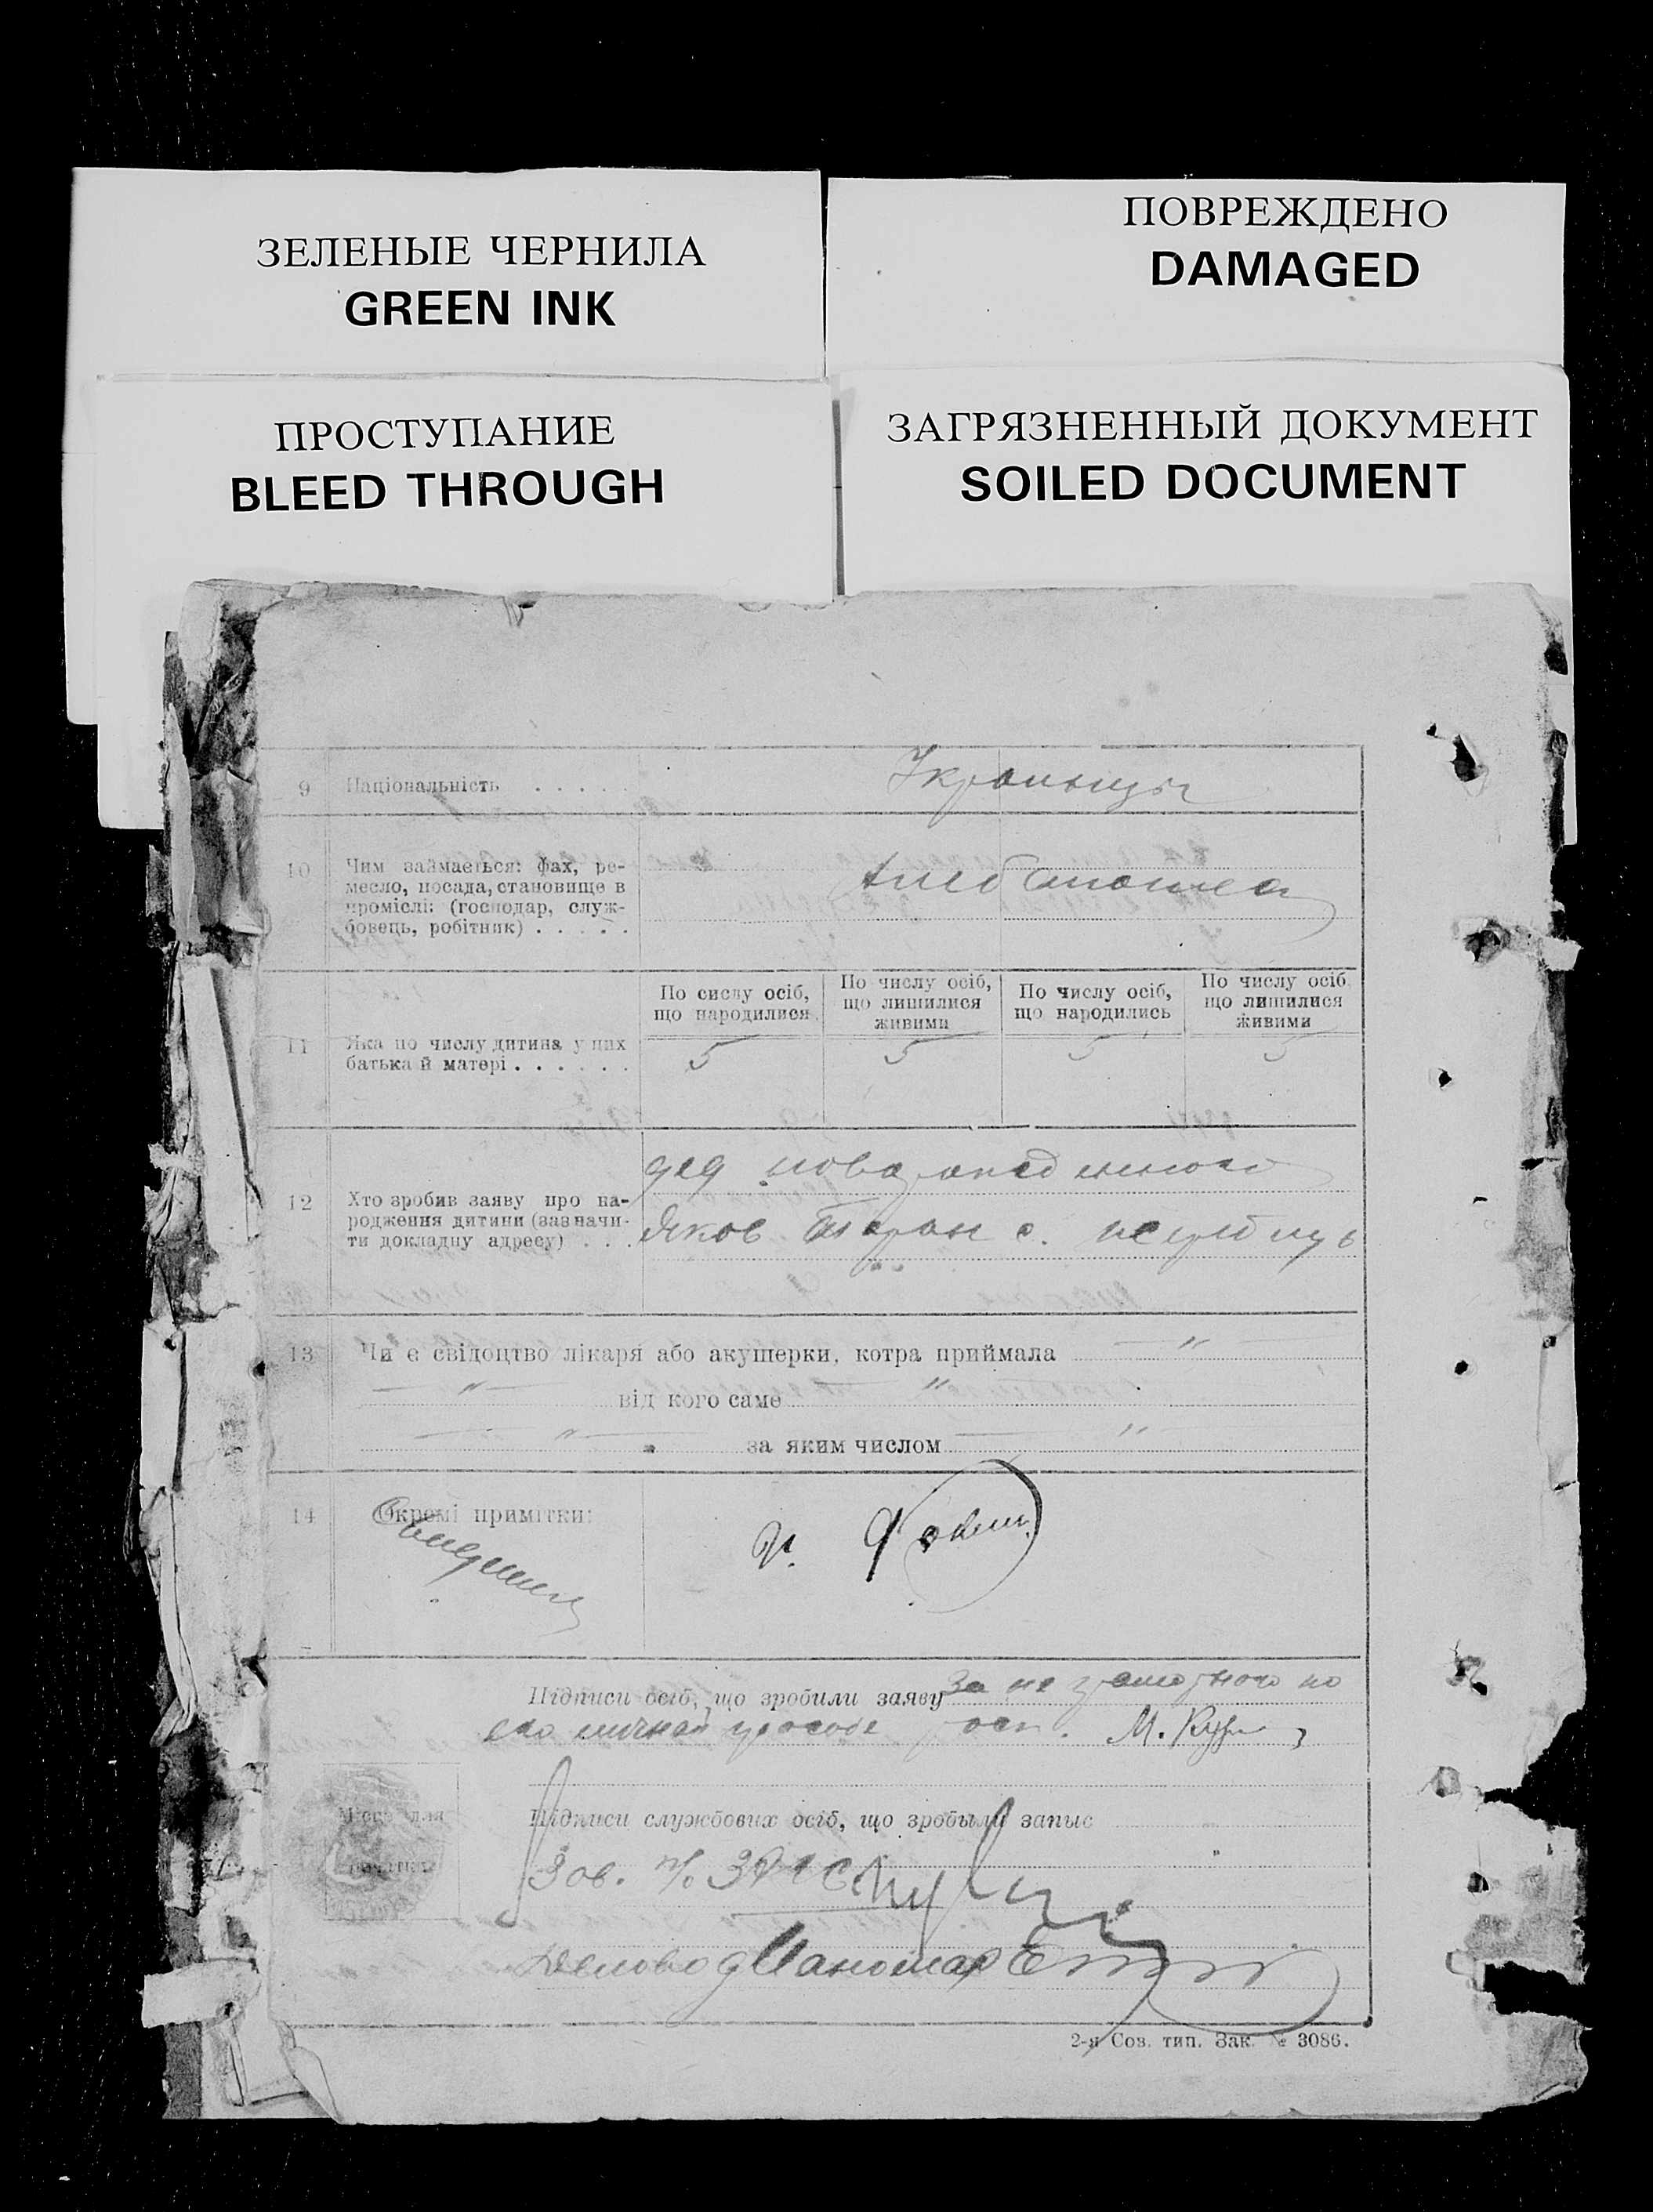 ЗЕЛЕНЫЕ ЧЕРНИЛА
GREEN INK
ПОВРЕЖДЕНО
DAMAGED
ПРОСТУПАНИЕ
BLEED THROUGH
ЗАГРЯЗНЕННЫЙ ДОКУМЕНТ
SOILED DOCUMENT
9 Національність . . . . . Украинцы
10 Чим займається: фах, ре-
месло, посада, становище в
проміслі: (господар, служ-
бовець, робітник) . . . . .
Хлебопашец
По сислу осіб,
що народилися
По числу осіб,
що лишилися
живими
По числу осіб,
що народились
По числу осіб
що лишилися
живими
11 Яка по числу дитина у цих
батька й матері . . . . . .
5 5 5 5
12 Хто зробив заяву про на-
родження дитини (зазначи-
ти докладну адресу) . . .
дед новорожденного
Яков с.
13 Чи є свідоцтво лікаря або акушерки, котра приймала — " —
— " — від кого саме — " —
— " — за яким числом — " —
14 Окремі примітки:
И.
Підписи осіб, що зробили заяву За неграмотного по
его личной просьбе расп. М.
Місце для
печатки
Підписи службових осіб, що зробылы запыс
Зав. п/о ЗАГС
Деловод
2-я Сов. тип. Зак. № 3086.